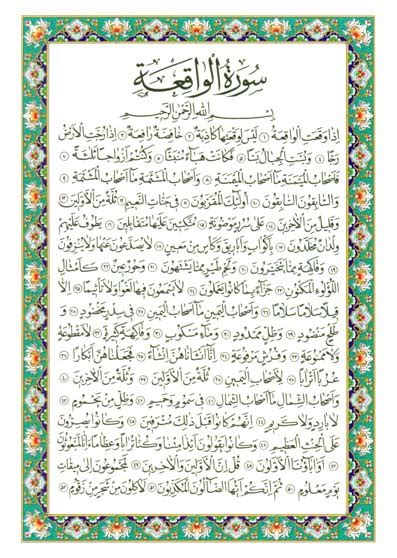 سورة الواقعة
بسم الله الرحمن الرحيم
إذا وقعت الواقعة ١ ليس لوقعتها كاذبة ٢ خافضة رافعة ٣ إذا رجت الأرض
رجا ٤ وبست الجبال بسا ٥ فكانت هباء منبثا ٦ وكنتم أزواجا ثلثة ٧
فأصحاب الميمنة ما أصحاب الميمنة ٨ وأصحاب المشئمة ما أصحاب المشئمة ٩
والسابقون السابقون ١٠ أولئك المقربون ١١ في جنات النعيم ١٢ ثلة من الأولين ١٣
وقليل من الآخرين ١٤ على سرر موضونة ١٥ متكئين عليها متقابلين ١٦ يطوف عليهم
ولدان مخلدون ١٧ بأكواب وأباريق وكأس من معين ١٨ لا يصدعون عنها ولا ينزفون
١٩ وفاكهة مما يتخيرون ٢٠ ولحم طير مما يشتهون ٢١ وحور عين ٢٢ كأمثال
اللؤلؤ المكنون ٢٣ جزاء بما كانوا يعملون ٢٤ لا يسمعون فيها لغوا ولا تأثيما ٢٥ إلا
قيلا سلاما سلاما ٢٦ وأصحاب اليمين ما أصحاب اليمين ٢٧ في سدر مخضود ٢٨ و
طلح منضود ٢٩ وظل ممدود ٣٠ وماء مسكوب ٣١ وفاكهة كثيرة ٣٢ لا مقطوعة
ولا ممنوعة ٣٣ وفرش مرفوعة ٣٤ إنا أنشأناهن إنشاء ٣٥ فجعلناهن أبكارا ٣٦
عربا أترابا ٣٧ لأصحاب اليمين ٣٨ ثلة من الأولين ٣٩ وثلة من الآخرين ٤٠
وأصحاب الشمال ما أصحاب الشمال ٤١ في سموم وحميم ٤٢ وظل من يحموم ٤٣
لا بارد ولا كريم ٤٤ إنهم كانوا قبل ذلك مترفين ٤٥ وكانوا يصرون
على الحنث العظيم ٤٦ وكانوا يقولون أئذا متنا وكنا ترابا وعظاما أئنا لمبعوثون
٤٧ أو آباؤنا الأولون ٤٨ قل إن الأولين والآخرين ٤٩ لمجموعون إلى ميقات
يوم معلوم ٥٠ ثم إنكم أيها الضالون المكذبون ٥١ لآكلون من شجر من زقوم ٥٢